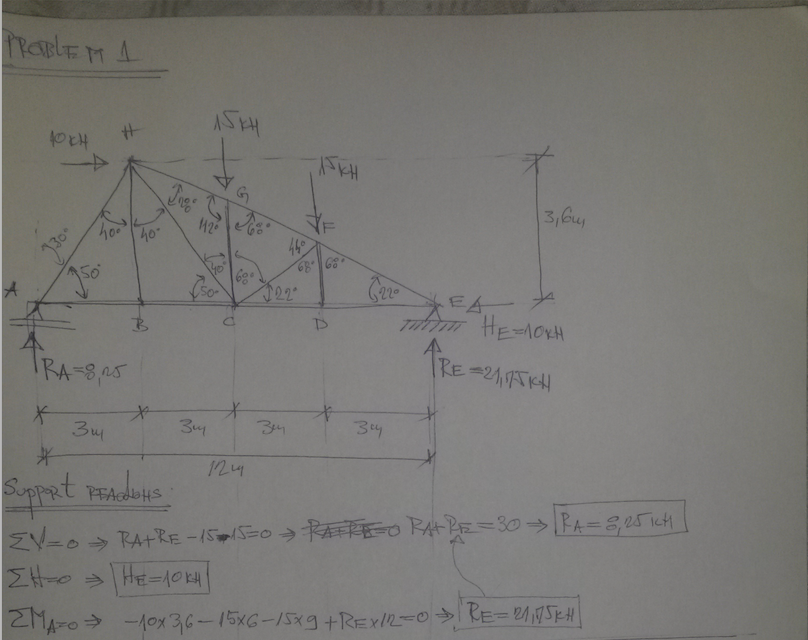 PROBLEM 1
H
10 KH
15 KH
15 KH
G
28°
112°
68°
F
3,6m
30°
40°
40°
44°
68°
68°
A
50°
50°
40°
68°
22°
22°
E
B
C
D
HE=10KH
RA=8,25
RE=21,75KH
3m
3m
3m
3m
12m
Support reactions
ΣV=0 ⇒ RA+RE-15-15=0 ⇒ RA+RE=0 RA+RE=30 ⇒ RA=8,25KH
ΣH=0 ⇒ HE=10KH
ΣMA=0 ⇒ -10×3,6-15×6-15×9+RE×12=0 ⇒ RE=21,75KH